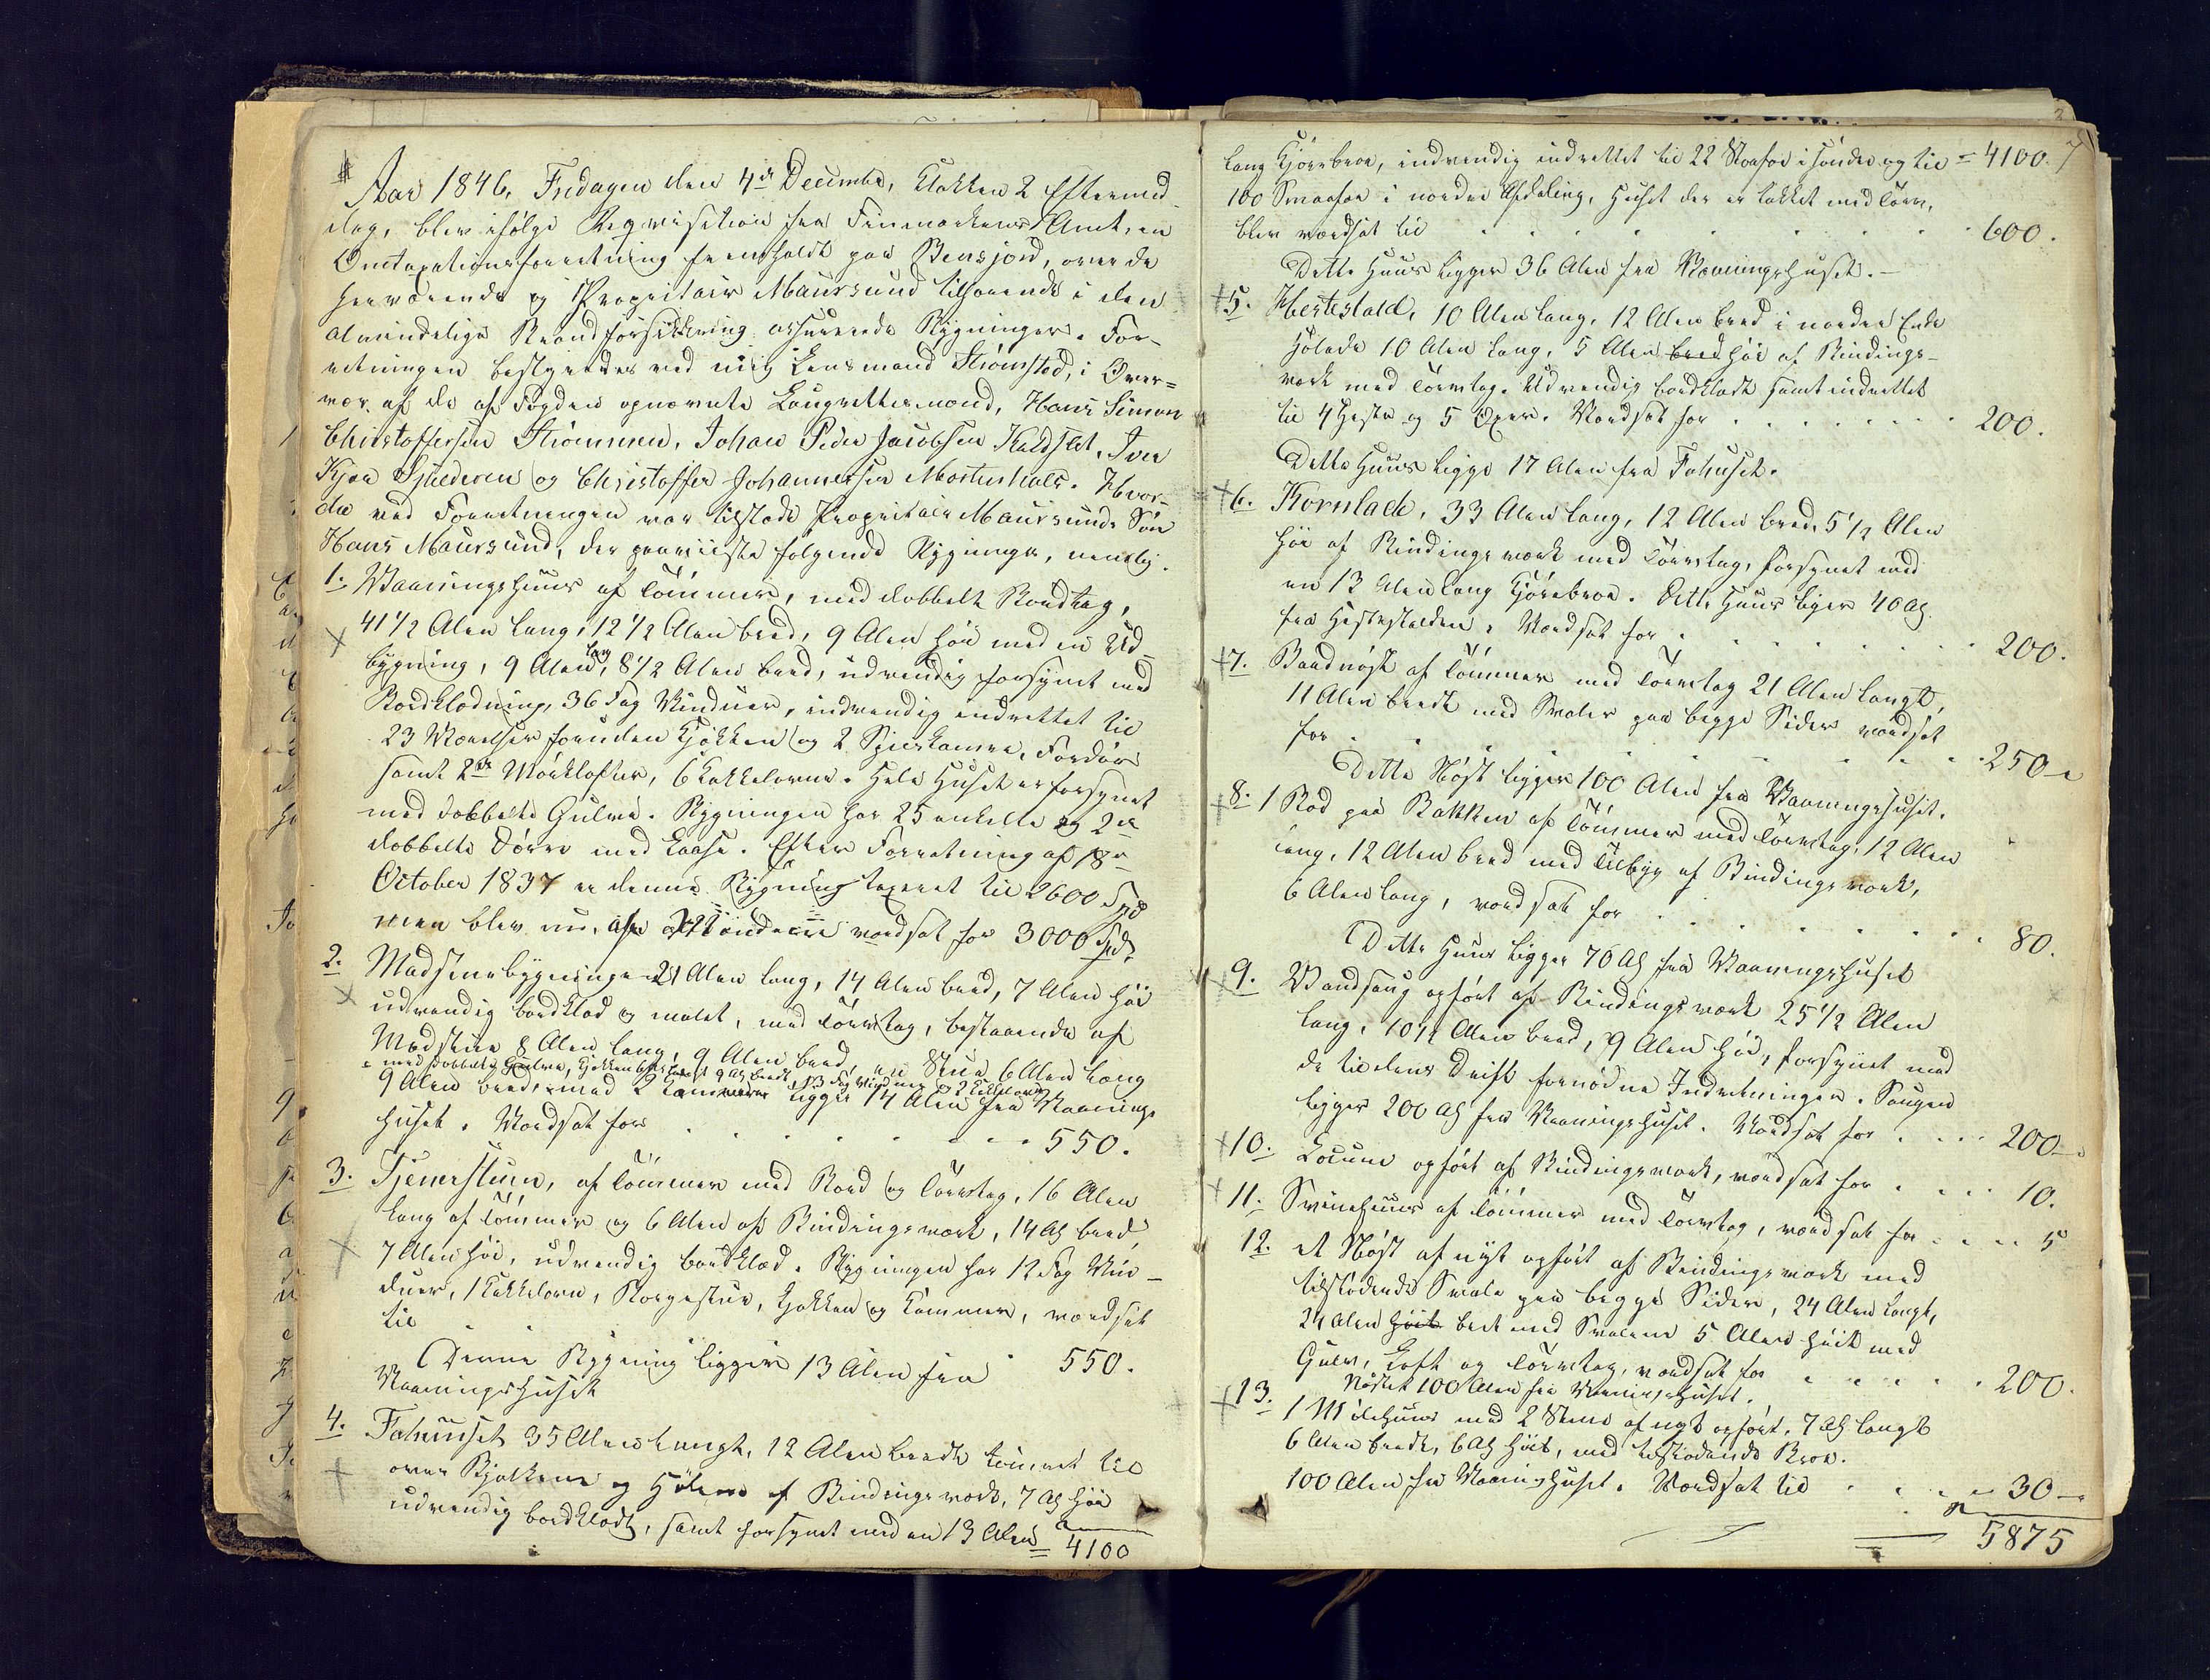 Aar 1846, Fredagen den 4de December, Klokken 2 Eftermid
dag, blev ifølge Reqvisition fra Finmarkens Amt, en
Omtaxationsforretning fremholdt paa Bensjord, over de
herværende og Proprietair Maursund tilhørende i den
almindelige Brandforsikkring assurerede Bygninger. For-
retningen bestyredes ved mig Lensmand Strømsted, i Over-
vær af de af Fogden opnævnte Laugrettesmænd, Hans Simon
Christoffersen Strømmen, Johan Peder Jacobsen Kaldslet, Iver
Kjær og Christoffer Johannesen Mortenhals. Hvor-
da ved Forretningen var tilstede Proprietair Maursunds Søn
Hans Maursund, der paaviiste følgende Bygninger, nemlig:
1. Vaaningshuus af Tømmer, med dobbelt Bordtag,
41 1/2 Alen lang, 12 1/2 Alen bred, 9 Alen høi med en Ud-
bygning, 9 Alen lang, 8 1/2 Alen bred, udvendig forsynet med
Bordklædning, 36 Fag Vinduer, indvendig indrettet til
23 Værelser foruden Kjøkken og 2 Spiiskamre,
samt 2de Mørklofter, 6 Kakkelovne. Hele Huset er forsynet
med dobbelte Gulve. Bygningen har 25 enkelte og 2de
dobbelte Dørre med Laase. Efter Forretning af 18de
October 1837 er denne Bygning taxeret til 2600 Spd
men blev nu af Mændene værdsat for 3000 Spd.
2. Madstuebygningen 21 Alen lang, 14 Alen bred, 7 Alen høi
udvendig bordklæd og malet, med Tørvtag, bestaaende af
Madstue 8 Alen lang, 9 Alen bred, en Stue 6 Alen lang
med dobbelte Gulve, Kjøkken 9 Al bredt, 13 Fag Vinduer og 2 Kakkelovne
9 Alen bred, med 2 Kammere ligger 14 Alen fra Vaanings
huset. Værdsat for . . . . . . 550.
3. Tjenerstuen, af Tømmer med Bord og Tørvtag, 16 Alen
lang af Tømmer og 6 Alen af Bindingsværk, 14 Al bred,
7 Alen høi, udvendig bordklæd. Bygningen har 12 Fag Vin-
duer, 1 Kakkelovn, Borgestue, Kjøkken og Kammer, værdsat
til . . . 550.
Denne Bygning ligger 13 Alen fra
Vaaningshuset
4. Fæhuuset 35 Alen langt, 12 Alen bredt tømret til
over Bjelkerne og Høladen af Bindingsværk, 7 Al høi
udvendig bordklædt, samt forsynet med en 13 Alen
= 4100
7
lang Kjørebroe, indvendig indrettet til 22 Storfæ i søndre og til = 4100.
100 Smaafæ i nordre Afdeling, Huset der er tækket med Tørv,
blev værdsat til . . . . . . 600.
Dette Huus ligger 36 Alen fra Vaaningshuset.
5. Hestestald, 10 Alen lang, 12 Alen bred i nordre Ende
Hølade 10 Alen lang, 5 Alen bred høi af Bindings-
værk med Tørvtag. Udvendig bordklædt samt indrettet
til 4 Heste og 5 Oxer. Værdsat for . . . . . . 200.
Dette Huus ligge 17 Alen fra Fæhuset.
6. Kornlade, 33 Alen lang, 12 Alen bred, 5 1/2 Alen
høi af Bindingsværk med Tørvtag, forsynet med
en 13 Alen lang Kjørebroe. Dette Huus ligger 40 Al
fra Hestestalden. Værdsat for . . . . . . 200.
7. Baadnøst af Tømmer med Tørvtag 21 Alen langt,
11 Alen bredt med Svaler paa begge Sider værdsat
for . . . . . . 250
Dette Nøst ligger 100 Alen fra Vaaningshuset.
8. 1 Bod paa Bakken af Tømmer med Tørvtag, 12 Alen
lang, 12 Alen bred med Tilbyg af Bindingsværk,
6 Alen lang, værdsat for . . . . . . 80.
Dette Huus ligger 70 Al fra Vaaningshuset
9. Vandsaug opført af Bindingsværk 25 1/2 Alen
lang, 10 1/2 Alen bred, 9 Alen høi, forsynet med
de til dens Drift fornødne Indretninger. Saugen
ligger 200 Al fra Vaaningshuset. Værdsat for . . . 200
10. Locum opført af Bindingsværk, værdsat for . . . 10.
11. Svinehuus af Tømmer med Tørvtag, værdsat for . . . 5
12. et Nøst af nyt opført af Bindingsværk med
tilstødende Svale paa begge Sider, 24 Alen langt,
24 Alen høit bred med Svalerne 5 Alen høit med
Gulv, Loft og Tørvtag, værdsat for . . . . . 200.
Nøstet 100 Alen fra Vaaningshuset.
13. 1 Møllehuus med 2 Stene af nyt opført, 7 Al langt
6 Alen bredt, 6 Al høit, med tilstødende Broe.
100 Alen fra Vaaningshuset. Værdsat til . . . 30
5875